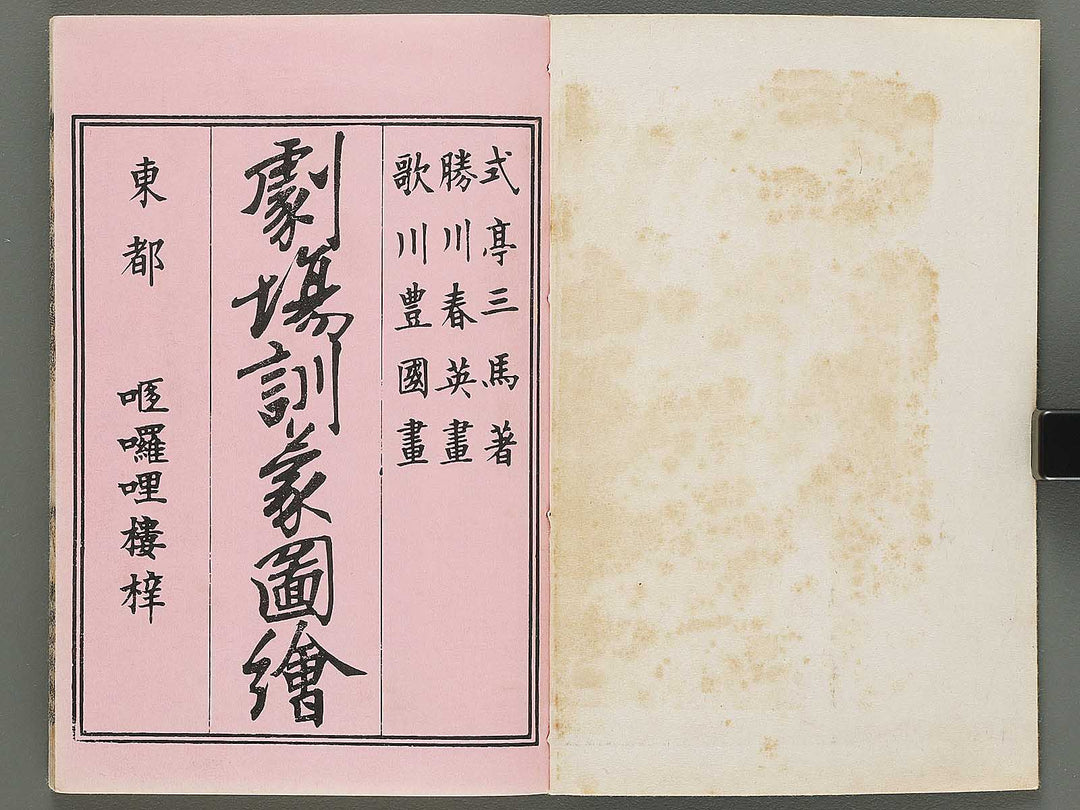 式亭三馬著
勝川春英畫
歌川豊國畫
劇場訓蒙圖繪
東都 哐囉哩樓梓